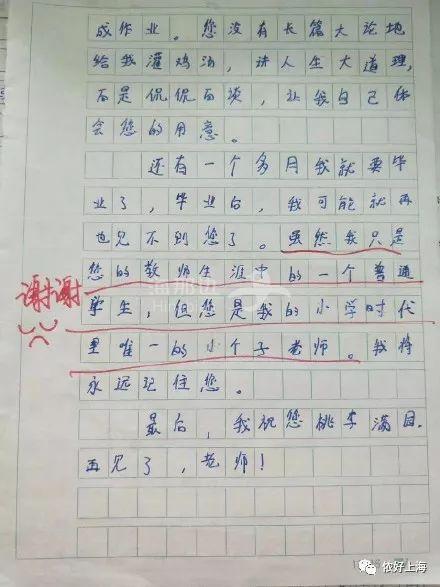 成作业。您没有长篇大论地
给我灌鸡汤，讲人生大道理，
而是侃侃而谈，让我自己体
会您的用意。
还有一个多月我就要毕
业了，毕业后，我可能就再
也见不到您了。虽然我只是
您的教师生涯中的一个普通
学生，但您是我的小学时代
里唯一的小个子老师。我将
永远记住您。
最后，我祝您桃李满园。
再见了，老师！
谢谢
侬好上海